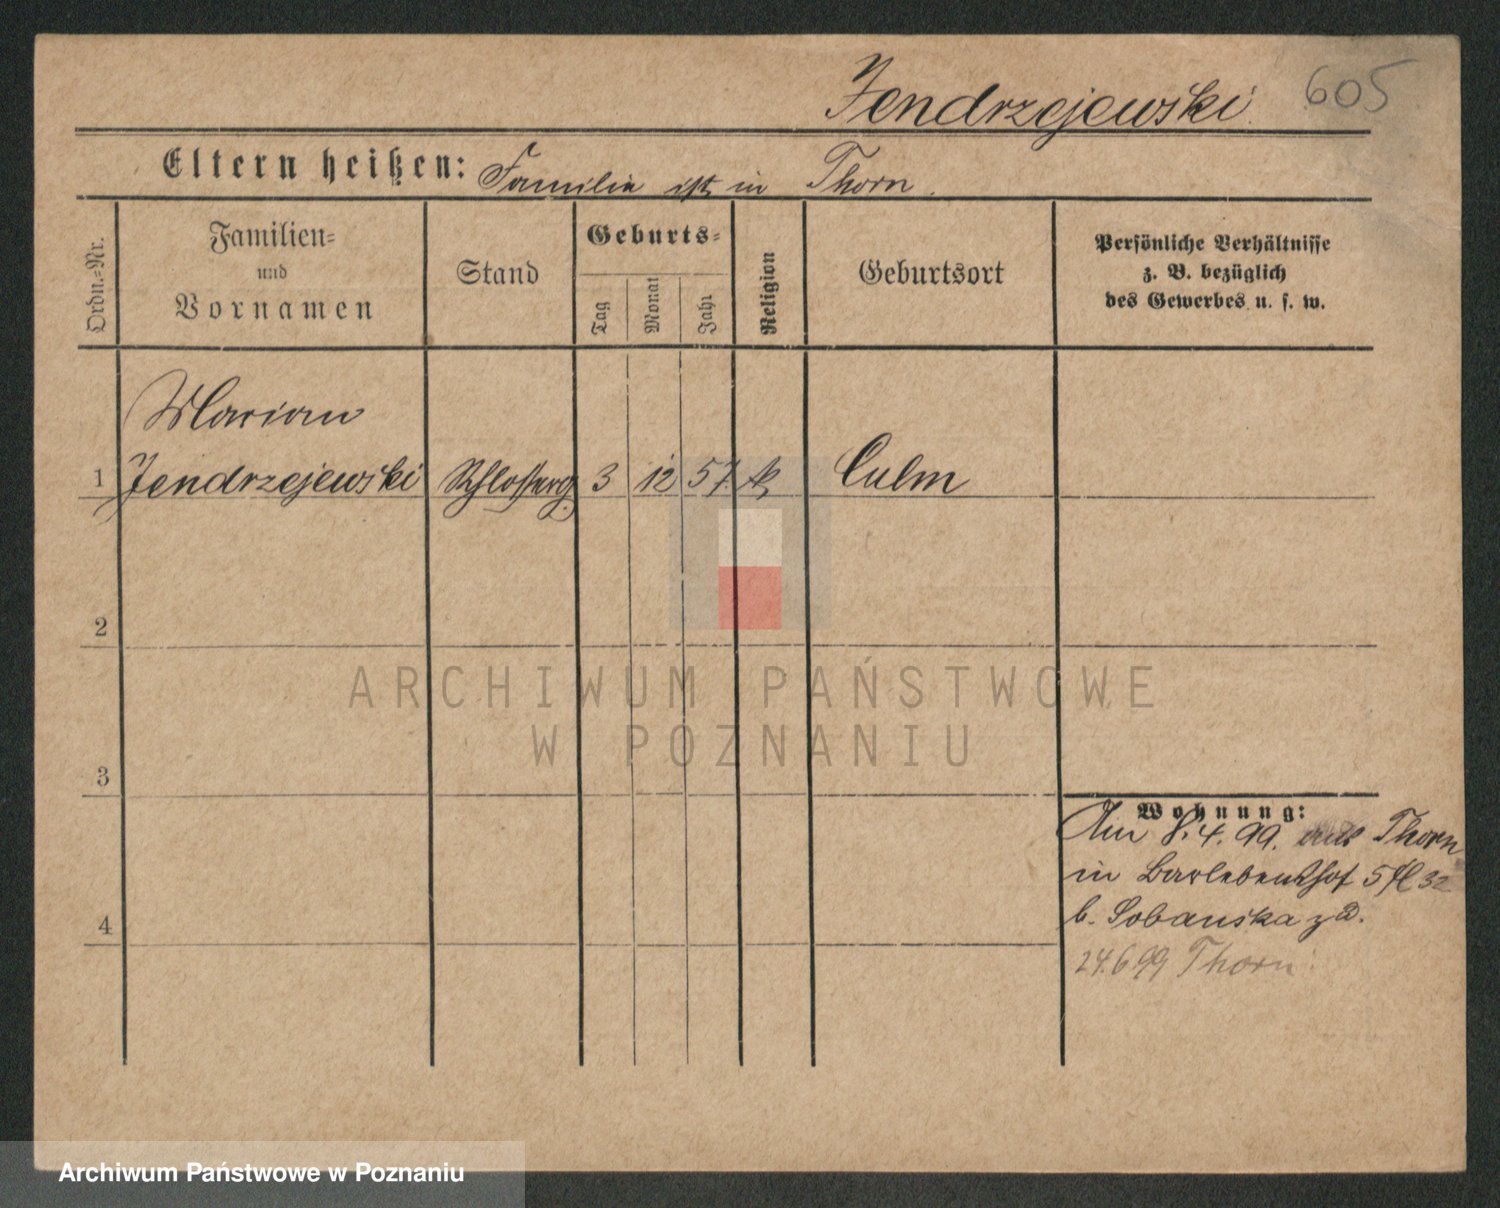 Jendrzejewski 605
Eltern heißen: Familie ist in Thorn.
Ordn.-Nr.
Familien-
und
Vornamen
Stand
Geburts-
Tag
Monat
Jahr
Religion
Geburtsort
Persönliche Verhältnisse
z. B. bezüglich
des Gewerbes u. s. w.
Marian
1 Jendrzejewski Schlosserg. 3 12 57 k Culm
2
3
4
Wohnung:
Am 8.4.99. aus Thorn
in Bartebenshof 5 32
b. Sobanska
24.6.99 Thorn
ARCHIWUM PAŃSTWOWE
W POZNANIU
Archiwum Państwowe w Poznaniu